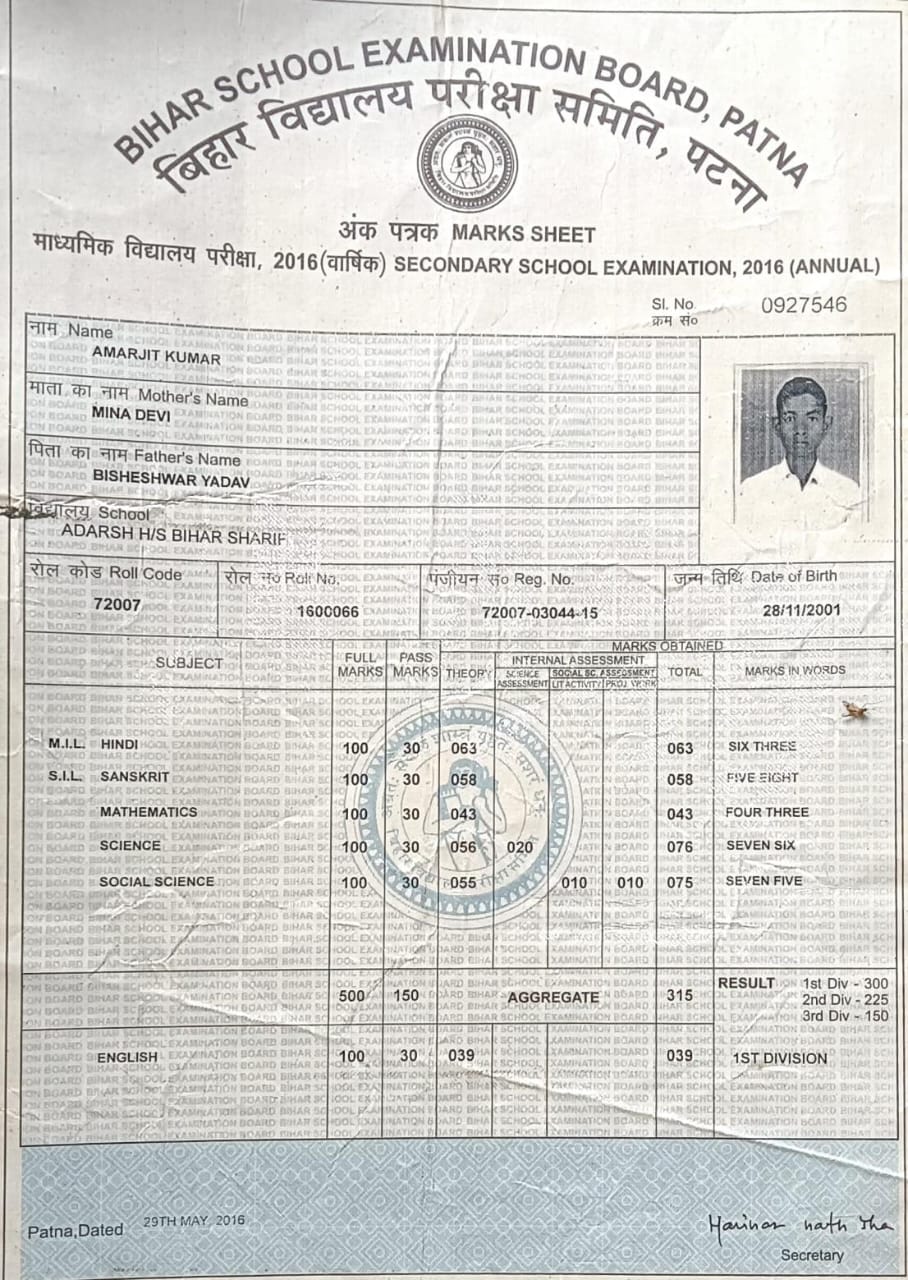 BIHAR SCHOOL EXAMINATION BOARD, PATNA
बिहार विद्यालय परीक्षा समिति, पटना
अंक पत्रक MARKS SHEET
माध्यमिक विद्यालय परीक्षा, 2016(वार्षिक) SECONDARY SCHOOL EXAMINATION, 2016 (ANNUAL)
Sl. No. 0927546
क्रम सं०
नाम Name
AMARJIT KUMAR
माता का नाम Mother's Name
MINA DEVI
पिता का नाम Father's Name
BISHESHWAR YADAV
विद्यालय School
ADARSH H/S BIHAR SHARIF
रोल कोड Roll Code रोल सं० Roll No. पंजीयन सं० Reg. No. जन्म तिथि Date of Birth
72007 1600066 72007-03044-15 28/11/2001
MARKS OBTAINED
SUBJECT FULL MARKS PASS MARKS THEORY INTERNAL ASSESSMENT TOTAL MARKS IN WORDS
SCIENCE ASSESSMENT SOCIAL SC. ASSESSMENT
LIT ACTIVITY PROJ WORK
M.I.L. HINDI 100 30 063 063 SIX THREE
S.I.L. SANSKRIT 100 30 058 058 FIVE EIGHT
MATHEMATICS 100 30 043 043 FOUR THREE
SCIENCE 100 30 056 020 076 SEVEN SIX
SOCIAL SCIENCE 100 30 055 010 010 075 SEVEN FIVE
500 150 AGGREGATE 315 RESULT 1st Div - 300
2nd Div - 225
3rd Div - 150
ENGLISH 100 30 039 039 1ST DIVISION
Patna,Dated 29TH MAY, 2016
Harihar nath Jha
Secretary